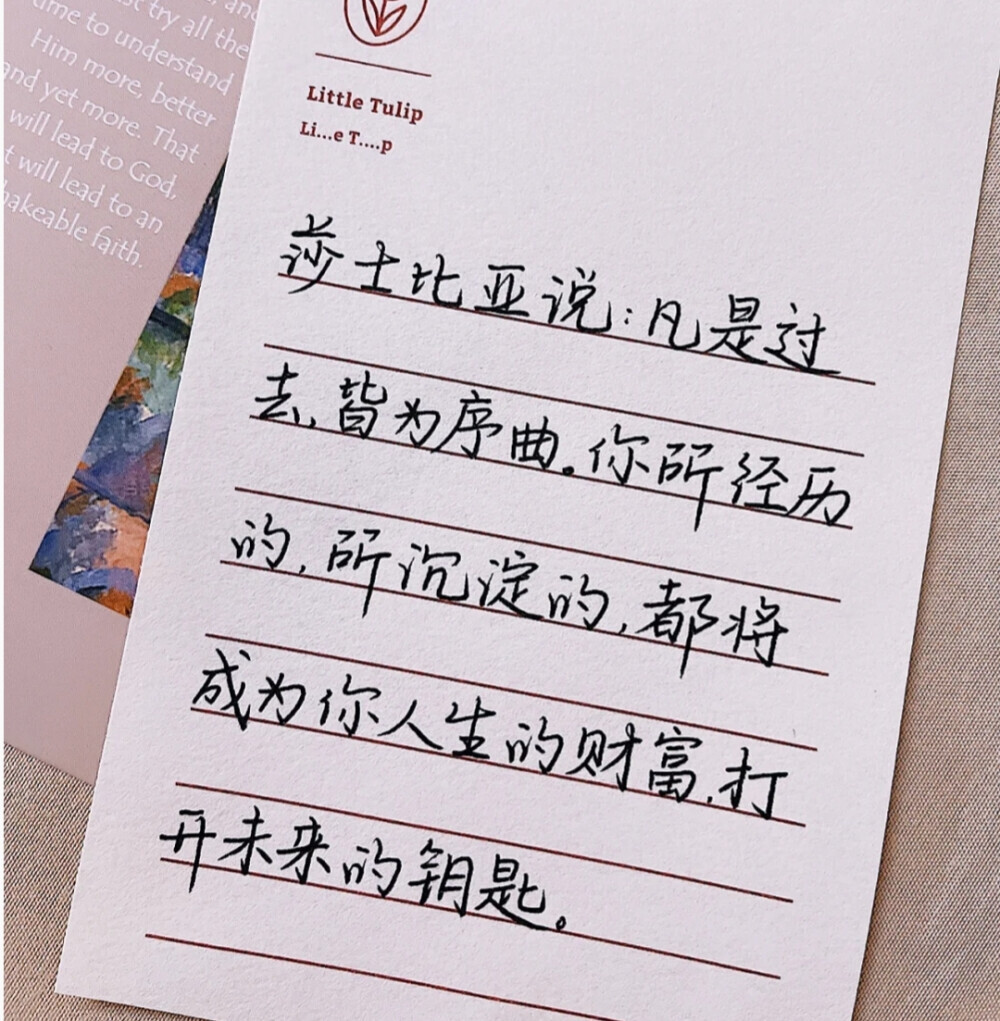 try all the
time to understand
Him more, better
and yet more. That
will lead to God,
will lead to an
faith.
Little Tulip
Li...e T....p
莎士比亚说:凡是过
去,皆为序曲。你所经历
的,所沉淀的,都将
成为你人生的财富,打
开未来的钥匙。